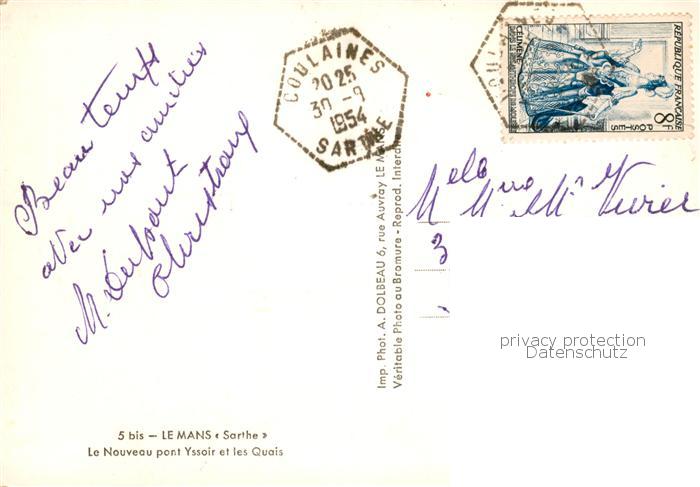 Beau temps
avec nos amitiés
M.
COULAINES
2025
30-9
1954
SARTHE
RÉPUBLIQUE FRANÇAISE
CÉLIMÈNE
8F
POSTES
Mr
3
privacy protection
Datenschutz
Imp. Phot. A. DOLBEAU 6, rue Auvray LE MANS
Véritable Photo au Bromure - Reprod. Interdite
5 bis — LE MANS « Sarthe »
Le Nouveau pont Yssoir et les Quais